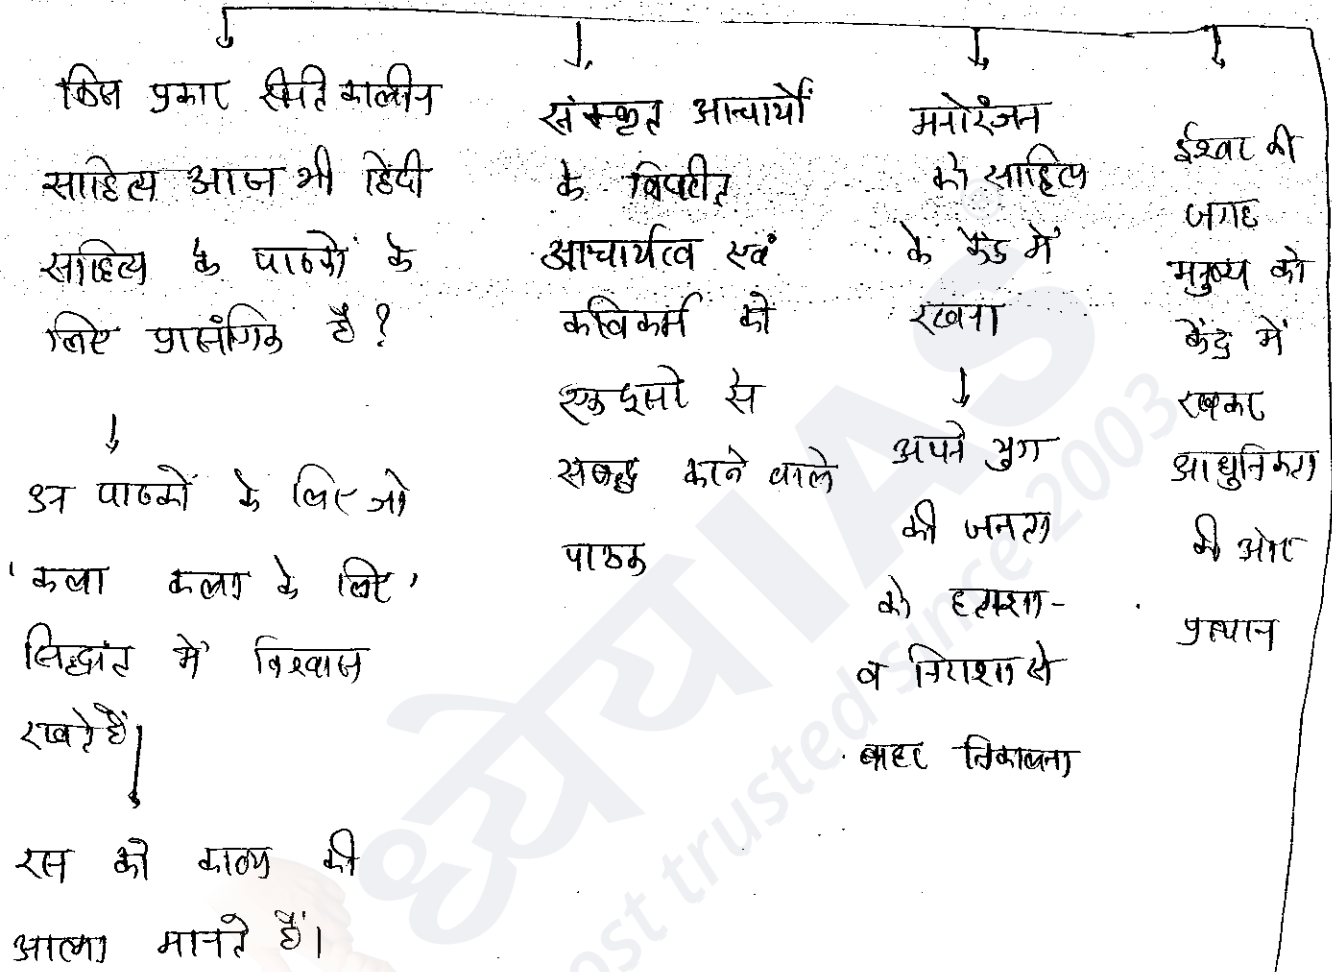 किस प्रकार रीतिकालीन
साहित्य आज भी हिंदी
साहित्य के पाठकों के
लिए प्रासंगिक है?
उन पाठकों के लिए जो
'कला कला के लिए'
सिद्धांत में विश्वास
रखते हैं।
रस को काव्य की
आत्मा मानते हैं।
संस्कृत आचार्यों
के विपरीत
आचार्यत्व एवं
कविकर्म को
एक दूसरे से
सम्बद्ध करने वाले
पाठक
मनोरंजन
को साहित्य
के केंद्र में
रखना
अपने युग
की जनता
को हताशा-
व निराशा से
बाहर निकालना
ईश्वर की
जगह
मनुष्य को
केंद्र में
रखकर
आधुनिकता
की ओर
प्रस्थान
ध्येयIAS
most trusted since 2003